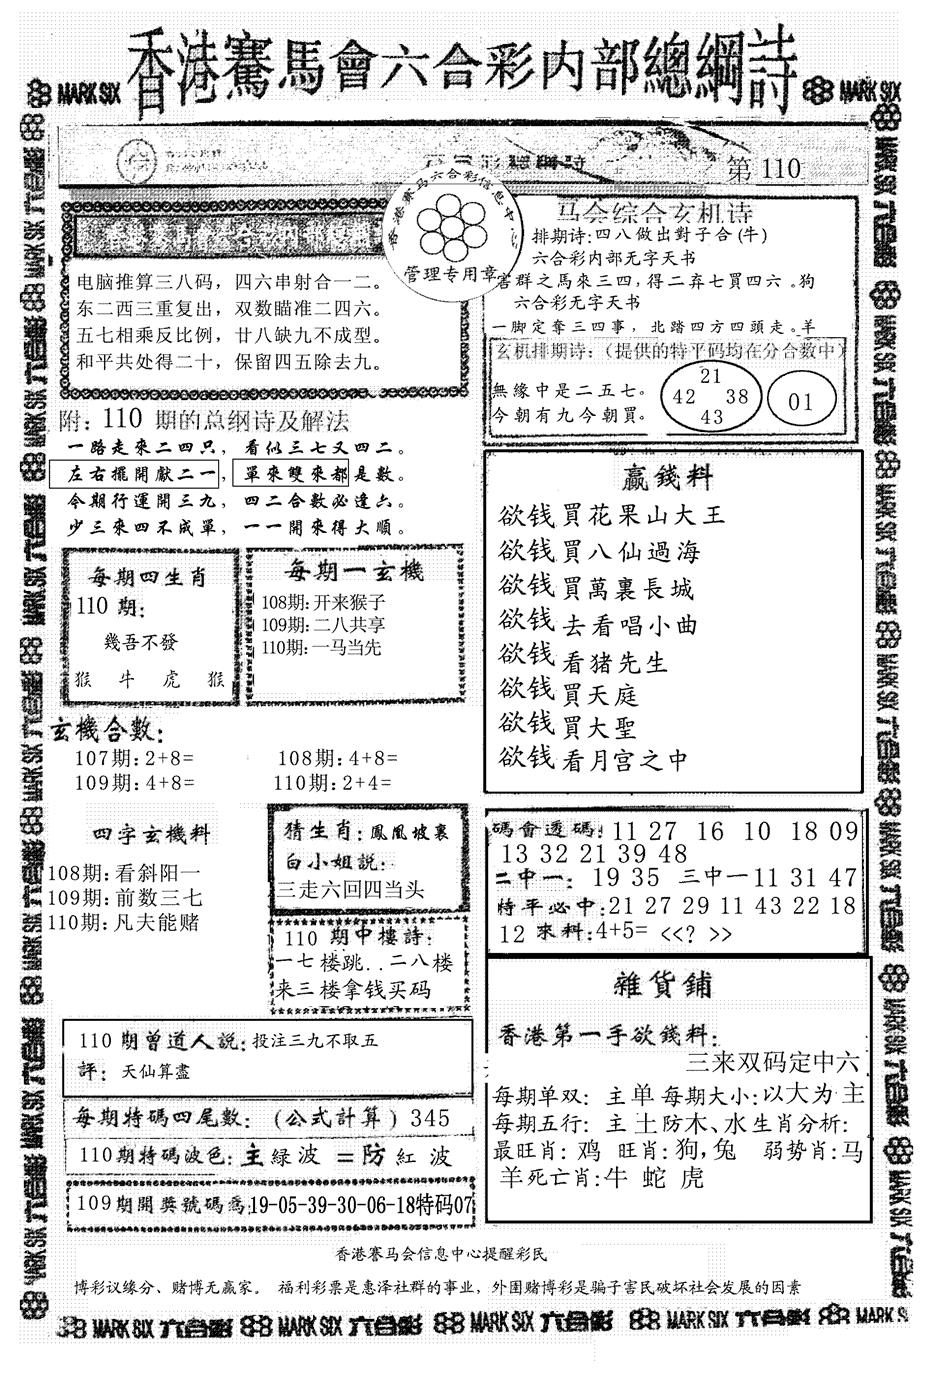 香港賽馬會六合彩内部總綱詩
MARK SIX
MARK SIX
第 110
香港赛马六合彩信息中心
管理专用章
电脑推算三八码，四六串射合一二。
东二西三重复出，双数瞄准二四六。
五七相乘反比例，廿八缺九不成型。
和平共处得二十，保留四五除去九。
马会综合玄机诗
排期诗:四八做出對子合(牛)
六合彩内部无字天书
害群之馬來三四，得二弃七買四六。狗
六合彩无字天书
一脚定奪三四事，北踏四方四頭走。羊
玄机排期诗:（提供的特平码均在分合数中）
無緣中是二五七。
今朝有九今朝買。
21
42 38
43
01
附: 110 期的总纲诗及解法
一路走來二四只，看似三七又四二。
左右擺開獻二一，單來雙來都是數。
今期行運開三九，四二合數必逢六。
少三來四不成單，一一開來得大順。
每期四生肖
110 期:
幾吾不發
猴 牛 虎 猴
每期一玄機
108期:开来猴子
109期:二八共享
110期:一马当先
玄機合數:
107期:2+8= 108期:4+8=
109期:4+8= 110期:2+4=
四字玄機料
108期:看斜阳一
109期:前数三七
110期:凡夫能赌
猜生肖:鳳凰坡裏
白小姐説:
三走六回四当头
110 期中樓詩:
一七楼跳..二八楼
来三楼拿钱买码
赢錢料
欲钱買花果山大王
欲钱買八仙過海
欲钱買萬裏長城
欲钱去看唱小曲
欲钱看猪先生
欲钱買天庭
欲钱買大聖
欲钱看月宫之中
碼會透碼:11 27 16 10 18 09
13 32 21 39 48
二中一: 19 35 三中一11 31 47
特平必中:21 27 29 11 43 22 18
12 來料:4+5= <<? >>
雜貨鋪
香港第一手欲錢料:
三来双码定中六
每期单双: 主单 每期大小:以大为主
每期五行: 主 土防木、水生肖分析:
最旺肖: 鸡 旺肖:狗,兔 弱势肖:马
羊死亡肖:牛 蛇 虎
110 期曾道人説:投注三九不取五
評: 天仙算盡
每期特碼四尾數:（公式計算）345
110期特碼波色:主緑波 =防紅波
109期開獎號碼爲:19-05-39-30-06-18特码07
香港赛马会信息中心提醒彩民
博彩议缘分、赌博无赢家。 福利彩票是惠泽社群的事业，外围赌博彩是骗子害民破坏社会发展的因素
MARK SIX 六合彩 MARK SIX 六合彩 MARK SIX 六合彩 MARK SIX 六合彩 MARK SIX